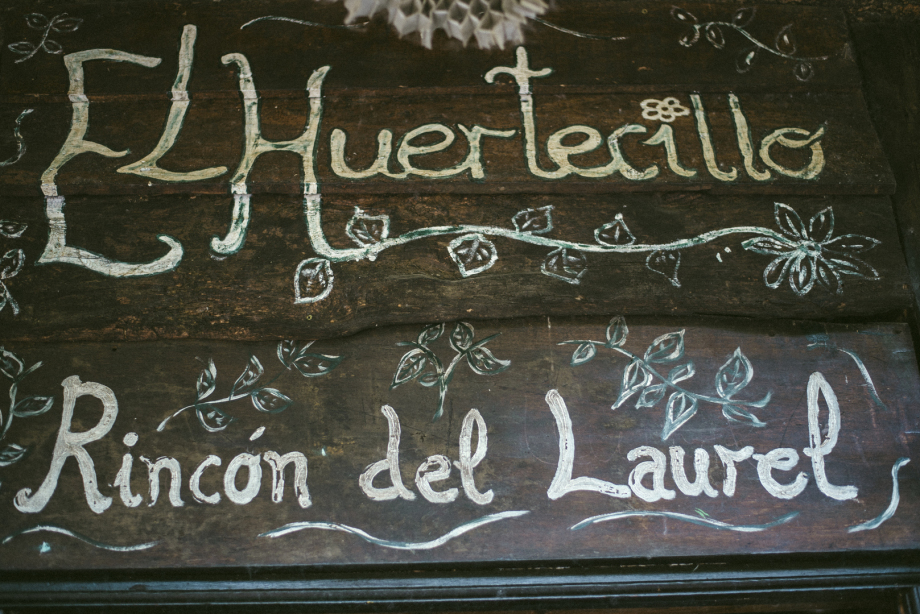 El Huertecillo
Rincón del Laurel